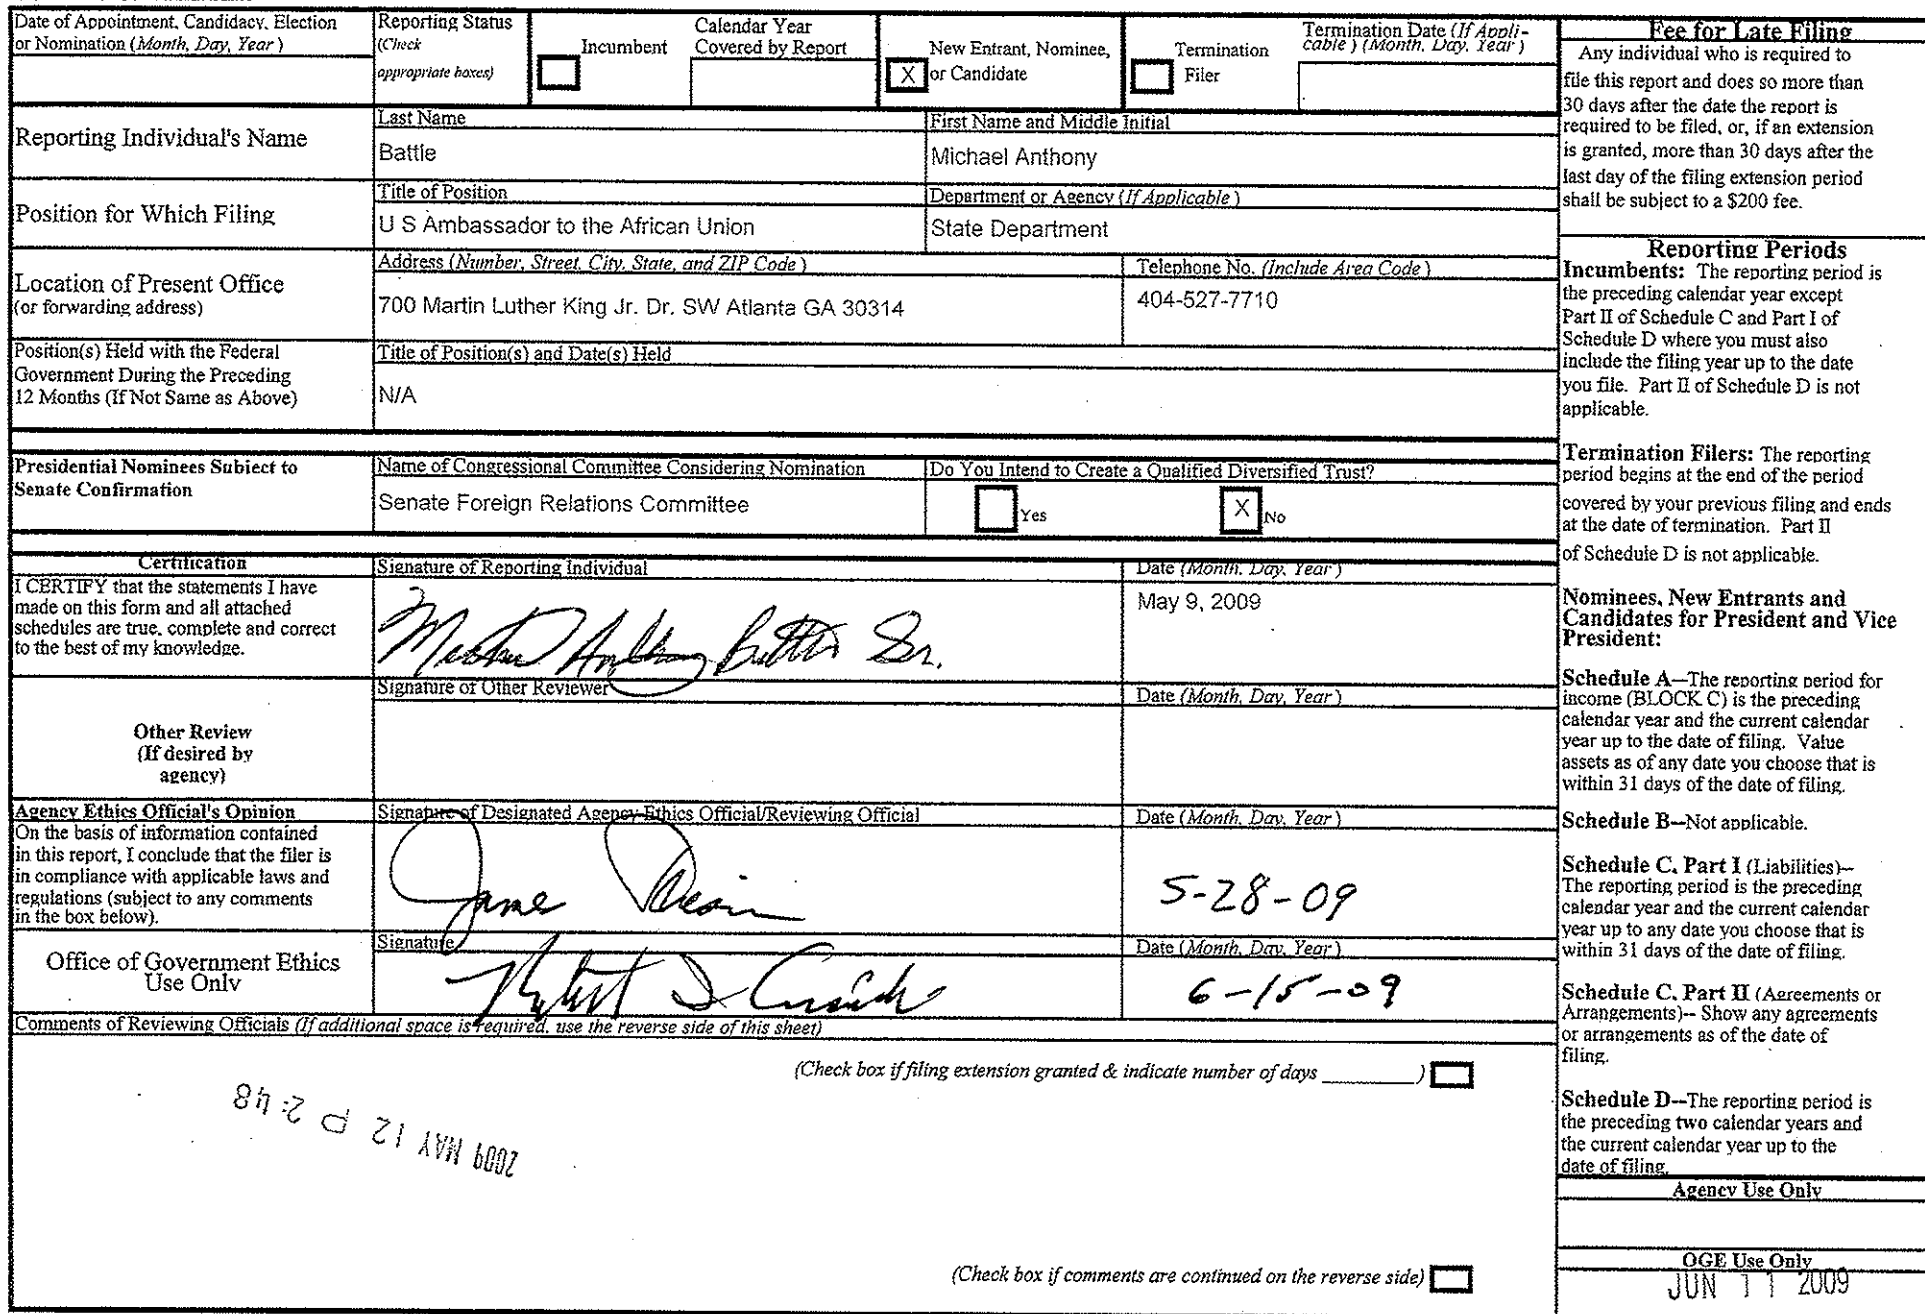 Date of Appointment, Candidacy, Election
or Nomination (Month, Day, Year)
Reporting Status
(Check
appropriate boxes)
Incumbent
Calendar Year
Covered by Report
X
New Entrant, Nominee,
or Candidate
Termination
Filer
Termination Date (If Appli-
cable) (Month, Day, Year)
Reporting Individual's Name
Last Name
Battle
First Name and Middle Initial
Michael Anthony
Position for Which Filing
Title of Position
U S Ambassador to the African Union
Department or Agency (If Applicable)
State Department
Location of Present Office
(or forwarding address)
Address (Number, Street, City, State, and ZIP Code)
700 Martin Luther King Jr. Dr. SW Atlanta GA 30314
Telephone No. (Include Area Code)
404-527-7710
Position(s) Held with the Federal
Government During the Preceding
12 Months (If Not Same as Above)
Title of Position(s) and Date(s) Held
N/A
Presidential Nominees Subject to
Senate Confirmation
Name of Congressional Committee Considering Nomination
Senate Foreign Relations Committee
Do You Intend to Create a Qualified Diversified Trust?
Yes
X No
Certification
I CERTIFY that the statements I have
made on this form and all attached
schedules are true, complete and correct
to the best of my knowledge.
Signature of Reporting Individual
Anthony Battle Sr.
Date (Month, Day, Year)
May 9, 2009
Other Review
(If desired by
agency)
Signature of Other Reviewer
Date (Month, Day, Year)
Agency Ethics Official's Opinion
On the basis of information contained
in this report, I conclude that the filer is
in compliance with applicable laws and
regulations (subject to any comments
in the box below).
Signature of Designated Agency Ethics Official/Reviewing Official
James
Date (Month, Day, Year)
5-28-09
Office of Government Ethics
Use Only
Signature
Robert
Date (Month, Day, Year)
6-15-09
Comments of Reviewing Officials (If additional space is required, use the reverse side of this sheet)
(Check box if filing extension granted & indicate number of days ________)
2009 MAY 12 P 2:48
(Check box if comments are continued on the reverse side)
Fee for Late Filing
Any individual who is required to
file this report and does so more than
30 days after the date the report is
required to be filed, or, if an extension
is granted, more than 30 days after the
last day of the filing extension period
shall be subject to a $200 fee.
Reporting Periods
Incumbents: The reporting period is
the preceding calendar year except
Part II of Schedule C and Part I of
Schedule D where you must also
include the filing year up to the date
you file. Part II of Schedule D is not
applicable.
Termination Filers: The reporting
period begins at the end of the period
covered by your previous filing and ends
at the date of termination. Part II
of Schedule D is not applicable.
Nominees, New Entrants and
Candidates for President and Vice
President:
Schedule A--The reporting period for
income (BLOCK C) is the preceding
calendar year and the current calendar
year up to the date of filing. Value
assets as of any date you choose that is
within 31 days of the date of filing.
Schedule B--Not applicable.
Schedule C, Part I (Liabilities)--
The reporting period is the preceding
calendar year and the current calendar
year up to any date you choose that is
within 31 days of the date of filing.
Schedule C, Part II (Agreements or
Arrangements)-- Show any agreements
or arrangements as of the date of
filing.
Schedule D--The reporting period is
the preceding two calendar years and
the current calendar year up to the
date of filing.
Agency Use Only
OGE Use Only
JUN 11 2009